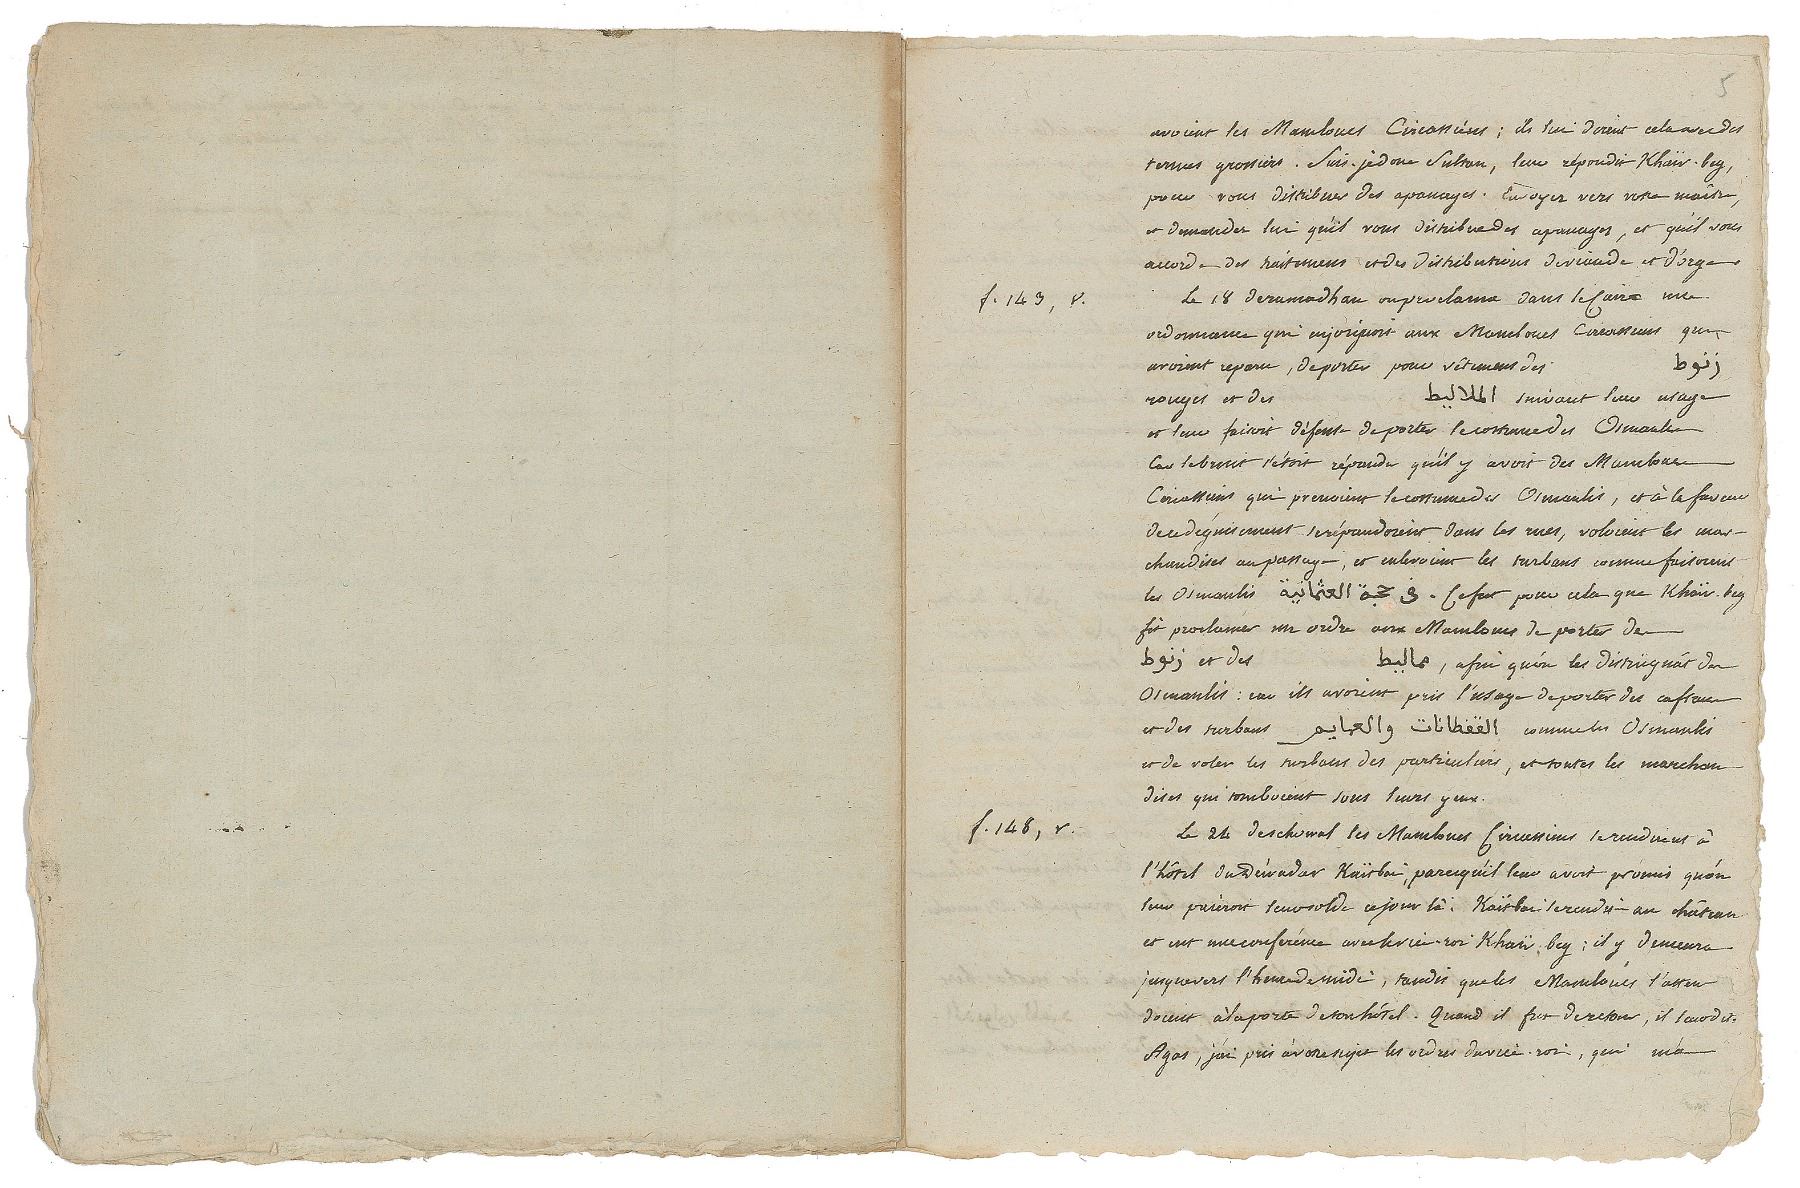 5
avoient les Mamloucs Circassiens ; ils lui dirent cela avec des
termes grossiers. Suis-je donc Sultan, leur répondit Khaïr-beg,
pour vous distribuer des apanages. Envoyez vers votre maître,
et demandez lui qu'il vous distribue des apanages, et qu'il vous
accorde des traitemens et des distributions de viande et d'orge.
f. 143, v. Le 18 de ramadhan on proclama dans le Caire une
ordonnance qui enjoignoit aux Mamloucs Circassiens qui
avoient reparu, de porter pour vêtement des زنوط
rouges et des الملاليط suivant leur usage
et leur faisoit défense de porter le costume des Osmanlis
Car le bruit s'étoit répandu qu'il y avoit des Mamloucs
Circassiens qui prenoient le costume des Osmanlis, et à la faveur
de ce déguisement se répandoient dans les rues, voloient les mar-
chandises au passage, et enlevoient les turbans comme faisoient
les Osmanlis في حجة العثمانية. Ce fut pour cela que Khaïr-beg
fit proclamer un ordre aux Mamloucs de porter des
زنوط et des مماليط, afin qu'on les distinguât des
Osmanlis : car ils avoient pris l'usage de porter des caftans
et des turbans القفطانات والعمايم comme les Osmanlis
et de voler les turbans des particuliers, et toutes les marchan
dises qui tomboient sous leurs yeux.
f. 148, r. Le 24 de schowal les Mamloucs Circassiens se rendirent à
l'hôtel du Déwadar Kaïtbaï, parcequ'il leur avoit promis qu'on
leur paieroit leur solde ce jour là. Kaïtbaï se rendit au château
et eut une conférence avec le vice-roi Khaïr-beg ; il y demeura
jusque vers l'heure de midi, tandis que les Mamloucs l'atten
doient à la porte de son hôtel. Quand il fut de retour, il leur dit:
Agas, j'ai pris à votre sujet les ordres du vice-roi, qui m'a